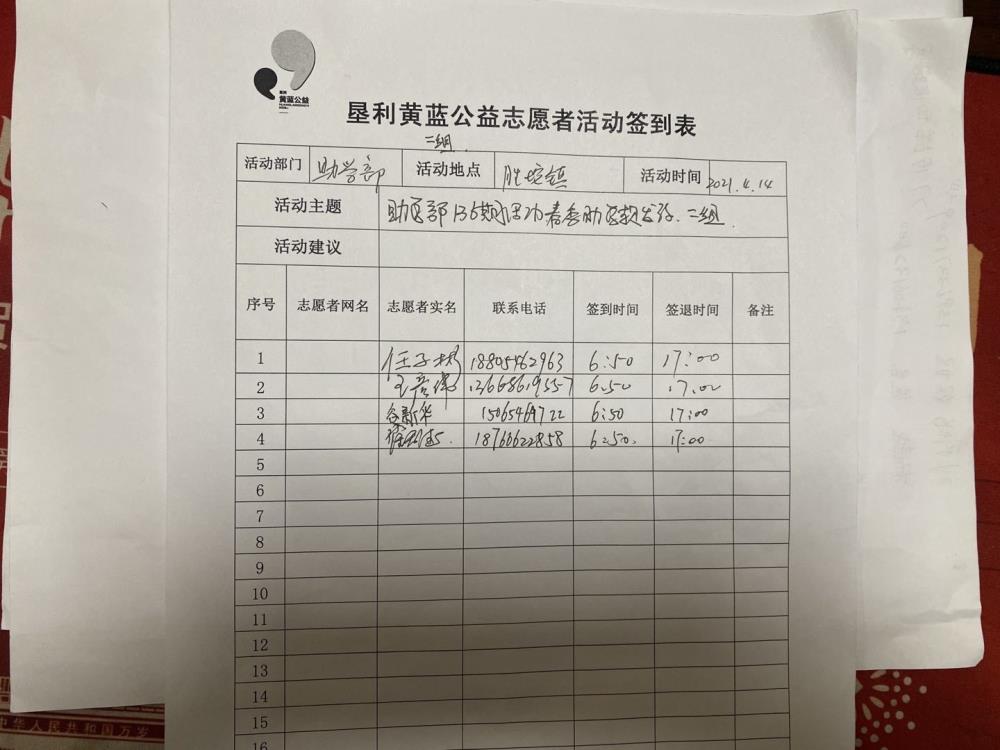 黄蓝公益
垦利黄蓝公益志愿者活动签到表
二组.
活动部门 助学部 活动地点 胜坨镇 活动时间 2021.4.14
活动主题 助学部136期 春季助学款发放.二组.
活动建议
序号 志愿者网名 志愿者实名 联系电话 签到时间 签退时间 备注
1 任子彬 18805462963 6:50 17:00
2 13668619557 6:50 17:00
3 新华 15065469722 6:50 17:00
4 18760622858 6:50. 17:00
5
6
7
8
9
10
11
12
13
14
15
16
中华人民共和国万岁